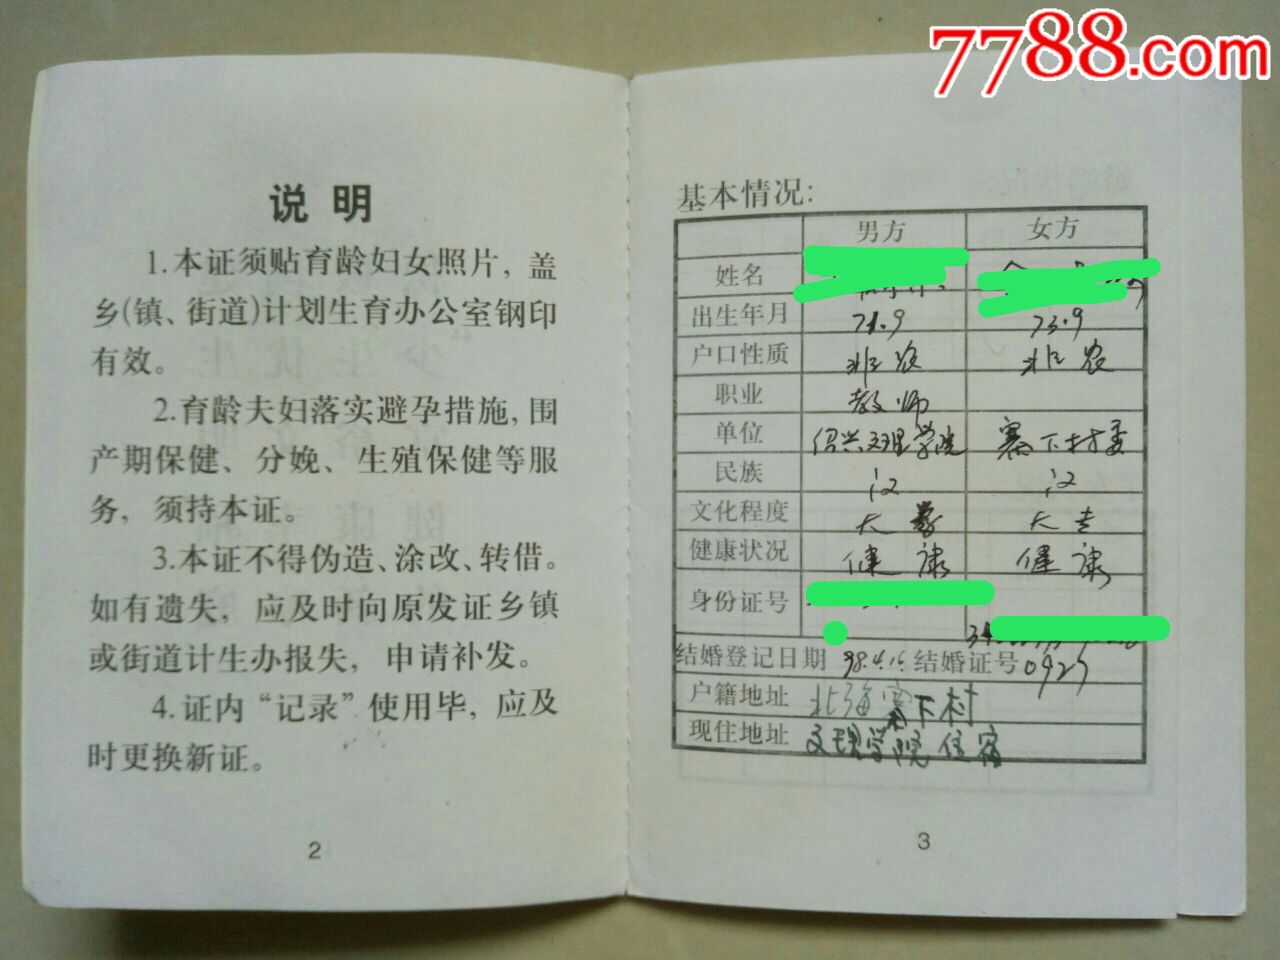 7788.com
说 明
1.本证须贴育龄妇女照片，盖
乡(镇、街道)计划生育办公室钢印
有效。
2.育龄夫妇落实避孕措施，围
产期保健、分娩、生殖保健等服
务，须持本证。
3.本证不得伪造、涂改、转借。
如有遗失，应及时向原发证乡镇
或街道计生办报失，申请补发。
4.证内“记录”使用毕，应及
时更换新证。
2
基本情况：
男方 女方
姓名
出生年月 71.9 73.9
户口性质 非农 非农
职业 教师
单位 绍兴文理学院 寨下村委
民族 汉 汉
文化程度 大 大专
健康状况 健康 健康
身份证号
结婚登记日期 98.4.16 结婚证号 0927
户籍地址 北海寨下村
现住地址 文理学院住宿
3